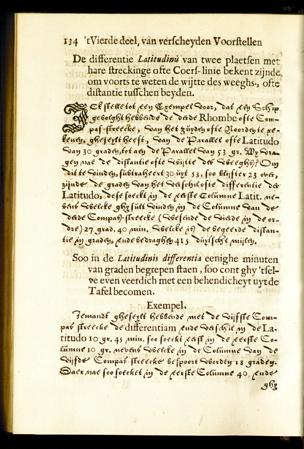 134 't Vierde deel, van verscheyden Voorstellen
De differentie Latitudinū van twee plaetsen met
hare streckinge ofte Coers-linie bekent zijnde,
om voorts te weten de wijtte des weeghs, ofte
distantie tusschen beyden.
Ick stelle tot een Exempel voor, dat een Schip
geseylt hebbende de derde Rhombe ofte Com-
pas-streecke, van het zuyden ofte Noorden te re-
kenen, gheseylt heeft, van de Parallel ofte Latitudo
van 30 graden, tot den Parallel van 53 gr. Men vra-
gen nae de distantie ofte wijtte des weeghs? Om
dit te vinden, subtraheert 30 uyt 53, soo blijfter 23 over,
zijnde de graden van het verschil ofte differentie der
Latitudo, dese soeckt in de eerste Columne Latit. ne-
vens welcke ghy sult vinden in de Columne van de
derde Compas-streecke (wesende de vierde in de or-
dre) 27 grad. 40 min. welcke is de begeerde distan-
tie in graden, ende bedraghen 415 duytsche mijlen.
Soo in de Latitudinis differentia eenighe minuten
van graden begrepen staen, soo cont ghy 't sel-
ve even veerdich met een behendicheyt uyt de
Tafel becomen.
Exempel.
Iemandt gheseylt hebbende met de vijfste Com-
pas streecke de differentiam ende verschil in de La-
titudo 10 gr. 45 min. soo soeckt eerst in de eerste Co-
lumne 10 gr. nevens welcke in de Columne van de
vijfde Compas streecke gespoort werden 18 graden.
Daer nae soo soecket in de eerste Columne 40, ende
ghy